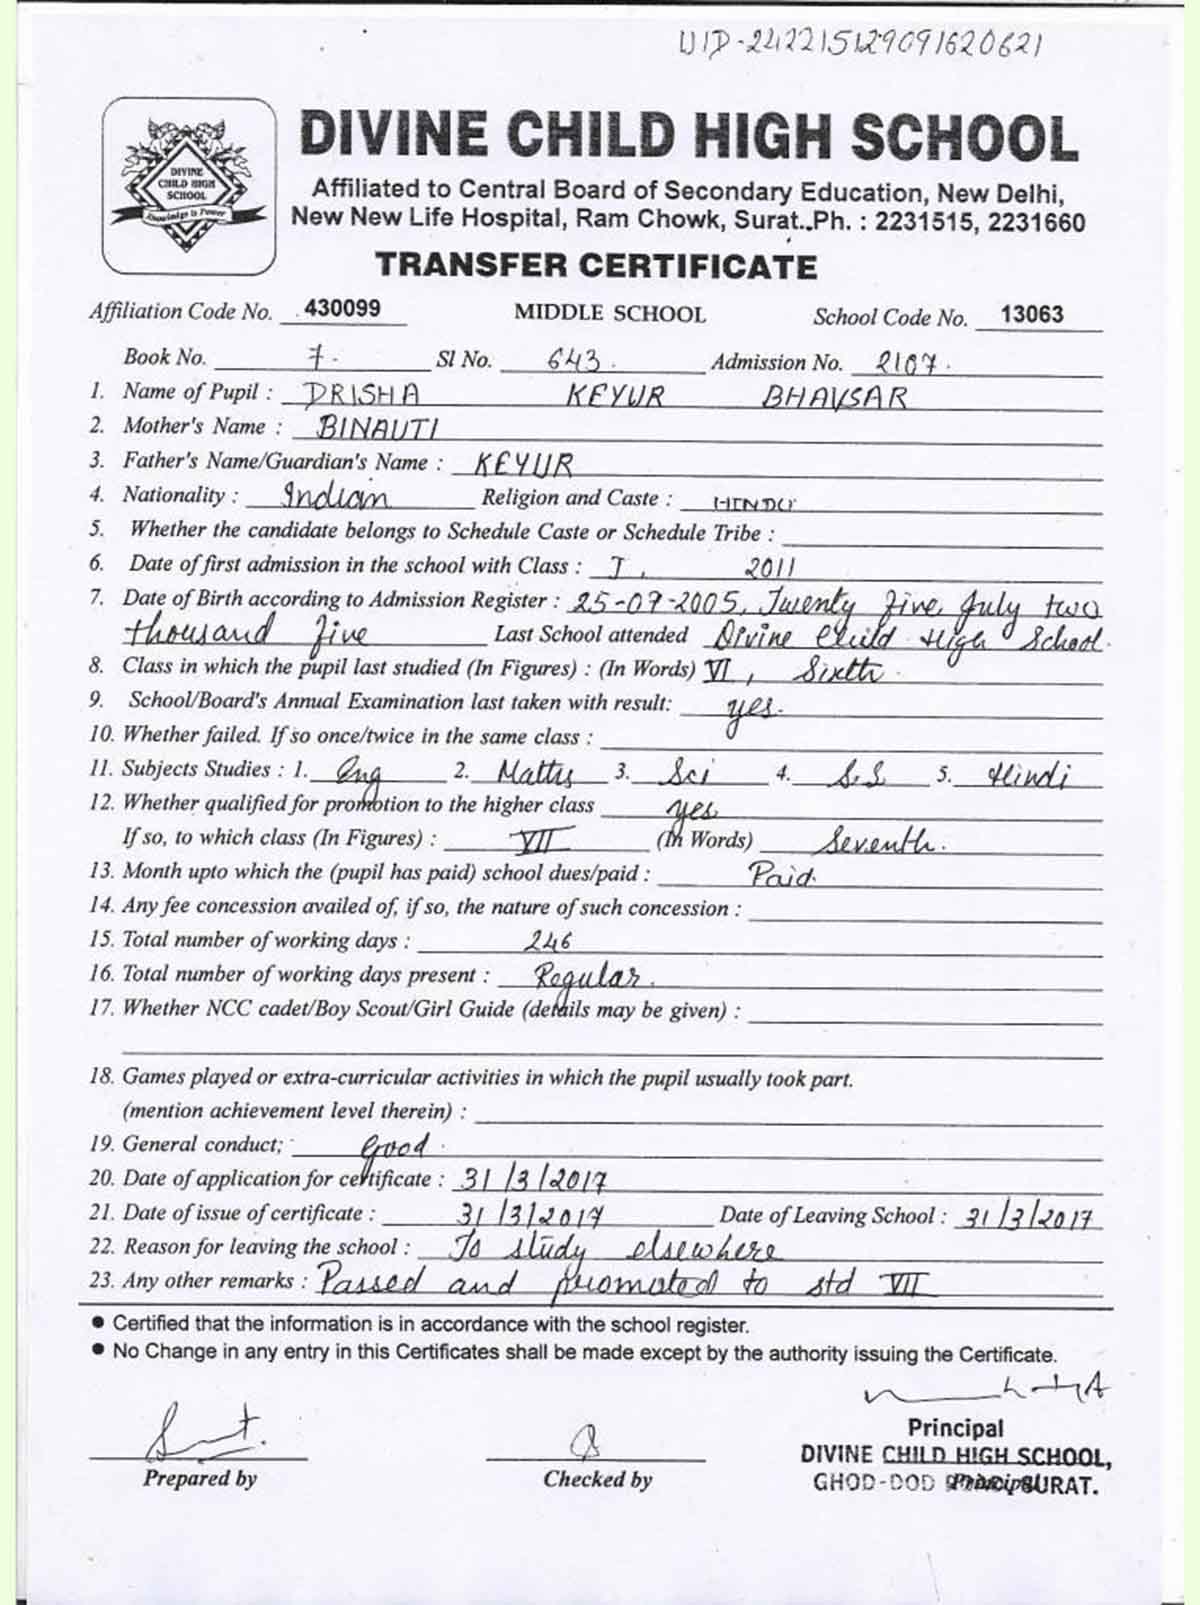 UID-242215129091620621
DIVINE CHILD HIGH SCHOOL
DIVINE
CHILD HIGH
SCHOOL
Knowledge is Power
Affiliated to Central Board of Secondary Education, New Delhi,
New New Life Hospital, Ram Chowk, Surat..Ph. : 2231515, 2231660
TRANSFER CERTIFICATE
Affiliation Code No. 430099 MIDDLE SCHOOL School Code No. 13063
Book No. 7. Sl No. 643. Admission No. 2107.
1. Name of Pupil : DRISHA KEYUR BHAVSAR
2. Mother's Name : BINAUTI
3. Father's Name/Guardian's Name : KEYUR
4. Nationality : Indian Religion and Caste : HINDU
5. Whether the candidate belongs to Schedule Caste or Schedule Tribe :
6. Date of first admission in the school with Class : I, 2011
7. Date of Birth according to Admission Register : 25-07-2005, Twenty five, July two
thousand five Last School attended Divine Child High School.
8. Class in which the pupil last studied (In Figures) : (In Words) VI, Sixth.
9. School/Board's Annual Examination last taken with result: yes.
10. Whether failed. If so once/twice in the same class :
11. Subjects Studies : 1. Eng 2. Maths 3. Sci 4. S.S 5. Hindi
12. Whether qualified for promotion to the higher class yes
If so, to which class (In Figures) : VII (In Words) Seventh.
13. Month upto which the (pupil has paid) school dues/paid : Paid.
14. Any fee concession availed of, if so, the nature of such concession :
15. Total number of working days : 246
16. Total number of working days present : Regular.
17. Whether NCC cadet/Boy Scout/Girl Guide (details may be given) :
18. Games played or extra-curricular activities in which the pupil usually took part.
(mention achievement level therein) :
19. General conduct; Good.
20. Date of application for certificate : 31/3/2017
21. Date of issue of certificate : 31/3/2017 Date of Leaving School : 31/3/2017
22. Reason for leaving the school : To study elsewhere
23. Any other remarks : Passed and promoted to std VII
● Certified that the information is in accordance with the school register.
● No Change in any entry in this Certificates shall be made except by the authority issuing the Certificate.
Principal
DIVINE CHILD HIGH SCHOOL,
Prepared by Checked by Principal
GHOD-DOD SURAT.